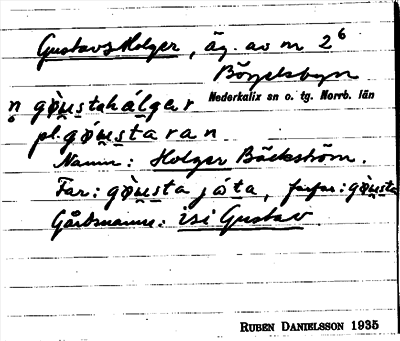 Gustavs Holger, äg. av nr 2⁶
Börjelsbyn
Nederkalix sn o. tg. Norrb. län
n̥ gòu̯stahálgar
pl. gòu̯staran
Namn: Holger Bäckström.
Far: gòu̯sta játa, farfar: gòu̯sta
Gårdsnamn: isi Gustav
RUBEN DANIELSSON 1935